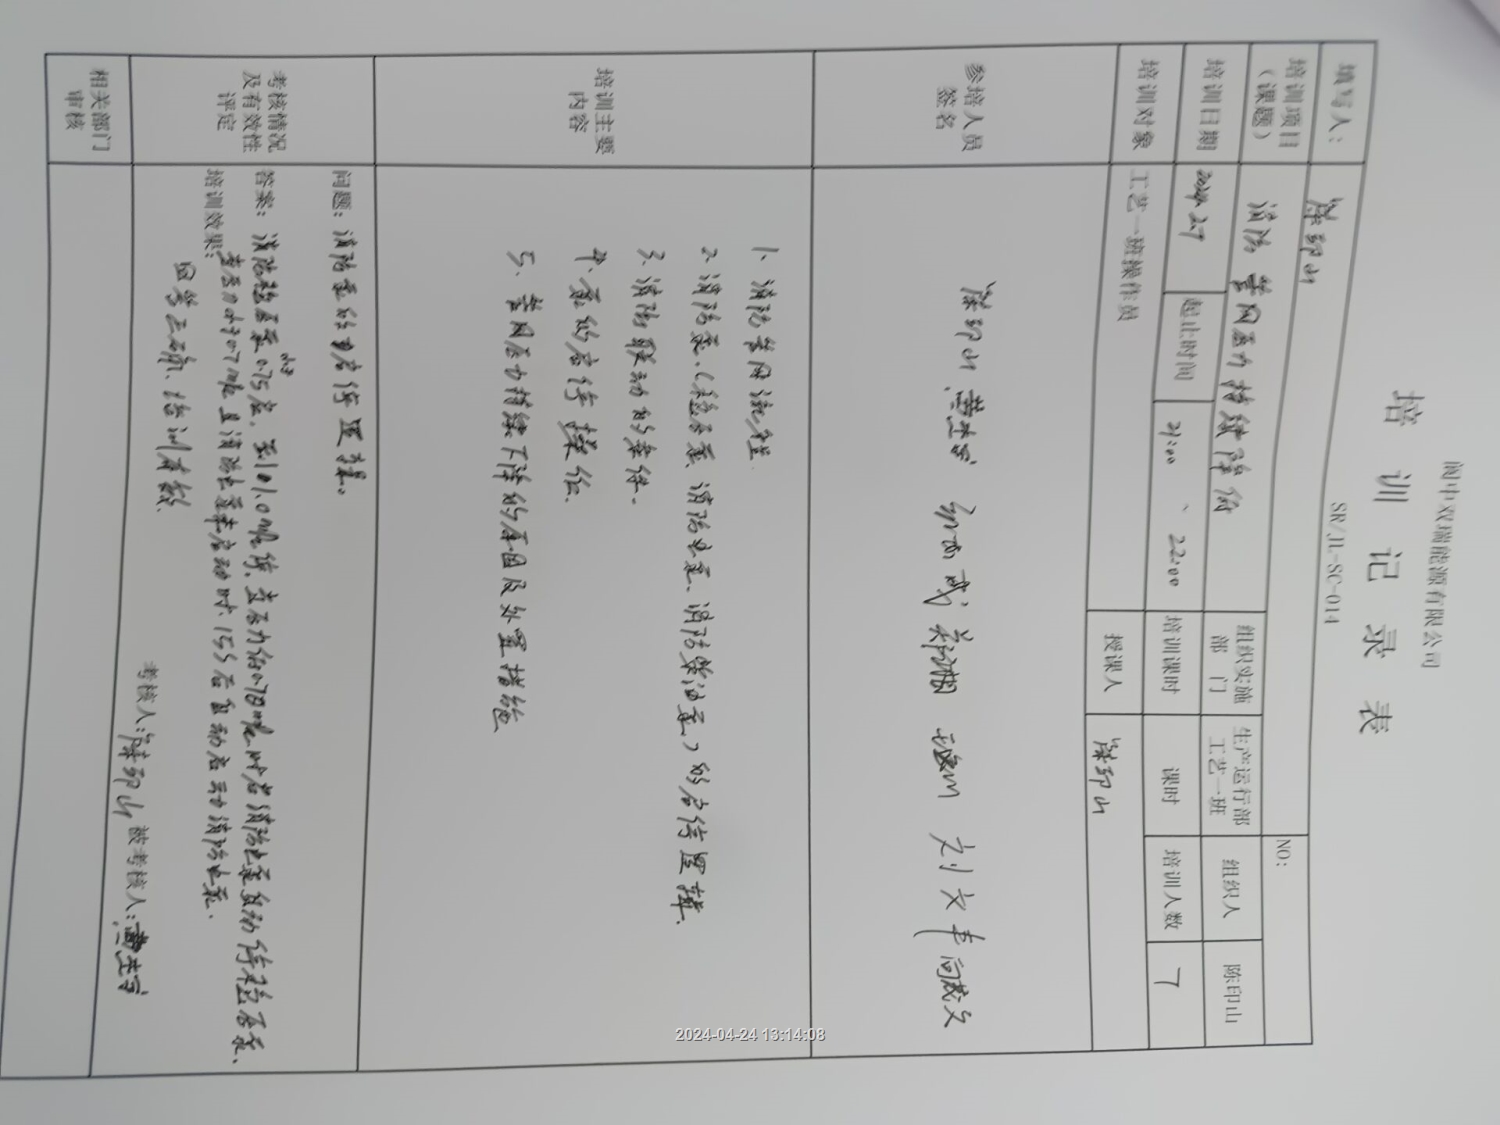 阆中双瑞能源有限公司
培训记录表
SR/JL-SC-014
NO:
填写人： 陈印山
培训项目（课题） 消防管网压力持续降低 组织实施部门 生产运行部工艺一班 组织人 陈印山
培训日期 2024.2.7 起止时间 21:00 、 22:00 培训课时 课时 培训人数 7
培训对象 工艺一班操作员 授课人 陈印山
参培人员签名 陈印山 刘文 向成文
培训主要内容
1、消防管网流程
2、消防泵、（稳压泵、消防电泵、消防柴油泵）的启停逻辑、
3、消防联动的条件、
4、泵的启停操作、
5、管网压力持续下降的原因及处置措施
考核情况及有效性评定
问题：消防泵的启停逻辑。
答案：消防稳压泵0.75启，到1.0mpa停、当压力低0.7 时启消防电泵自动停稳压泵、
当压力小于0.7mpa且消防电泵未启动时、15S后自动启动消防电泵.
培训效果：
回答正确、培训有效.
考核人：陈印山 被考核人：
相关部门审核
2024-04-24 13:14:08